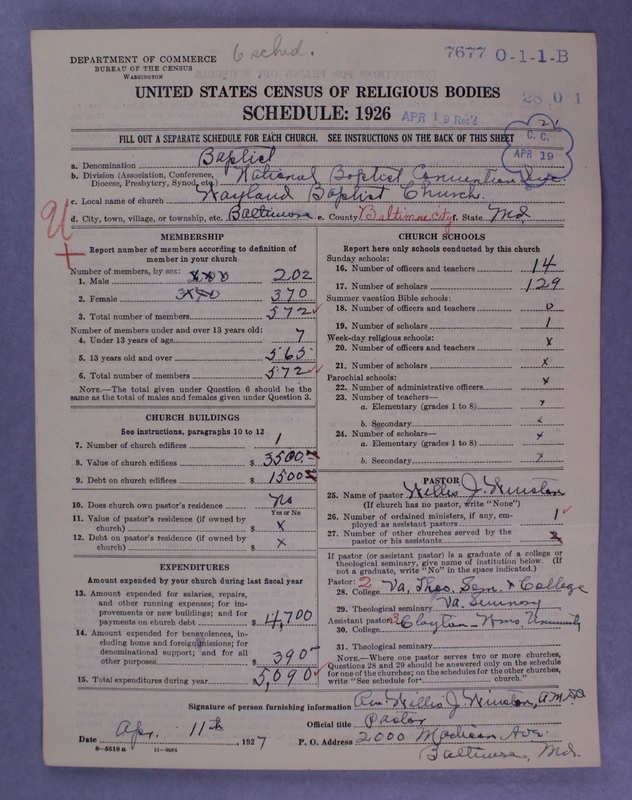 DEPARTMENT OF COMMERCE
BUREAU OF THE CENSUS
WASHINGTON
6 sched.
7677 0-1-1-B
UNITED STATES CENSUS OF RELIGIOUS BODIES
28 0 1
SCHEDULE: 1926
APR 19 Rec'd
FILL OUT A SEPARATE SCHEDULE FOR EACH CHURCH. SEE INSTRUCTIONS ON THE BACK OF THIS SHEET
C. C.
APR 19
a. Denomination Baptist
b. Division (Association, Conference, Diocese, Presbytery, Synod, etc.) National Baptist Convention Inc
c. Local name of church Wayland Baptist Church.
d. City, town, village, or township, etc. Baltimore e. County Baltimore city f. State Md.
MEMBERSHIP
Report number of members according to definition of
member in your church
Number of members, by sex:
1. Male 202
2. Female 370
3. Total number of members 572
Number of members under and over 13 years old:
4. Under 13 years of age 7
5. 13 years old and over 565
6. Total number of members 572
NOTE.—The total given under Question 6 should be the
same as the total of males and females given under Question 3.
CHURCH BUILDINGS
See instructions, paragraphs 10 to 12
7. Number of church edifices 1
8. Value of church edifices $ 3500
9. Debt on church edifices $ 1500
10. Does church own pastor's residence No
Yes or No
11. Value of pastor's residence (if owned by
church) $ X
12. Debt on pastor's residence (if owned by
church) $ X
EXPENDITURES
Amount expended by your church during last fiscal year
13. Amount expended for salaries, repairs,
and other running expenses; for im-
provements or new buildings; and for
payments on church debt $ 4,700
14. Amount expended for benevolences, in-
cluding home and foreign missions; for
denominational support; and for all
other purposes $ 390
15. Total expenditures during year $ 5,090
CHURCH SCHOOLS
Report here only schools conducted by this church
Sunday schools:
16. Number of officers and teachers 14
17. Number of scholars 129
Summer vacation Bible schools:
18. Number of officers and teachers
19. Number of scholars
Week-day religious schools:
20. Number of officers and teachers x
21. Number of scholars x
Parochial schools:
22. Number of administrative officers x
23. Number of teachers—
a. Elementary (grades 1 to 8) x
b. Secondary x
24. Number of scholars—
a. Elementary (grades 1 to 8) x
b. Secondary x
PASTOR
25. Name of pastor Willis J. Winston
(If church has no pastor, write "None")
26. Number of ordained ministers, if any, em-
ployed as assistant pastors 1
27. Number of other churches served by the
pastor or his assistants
If pastor (or assistant pastor) is a graduate of a college or
theological seminary, give name of institution below. (If
not a graduate, write "No" in the space indicated.)
Pastor: 2
28. College Va. Theo. Sem. & College
29. Theological seminary Va. Seminary
Assistant pastor: 3
30. College Clayton-Wms. University
31. Theological seminary
NOTE.—Where one pastor serves two or more churches,
Questions 28 and 29 should be answered only on the schedule
for one of the churches; on the schedules for the other churches,
write "See schedule for church."
Signature of person furnishing information Rev. Willis J. Winston, A.M.
Official title Pastor
Date Apr. 11th, 1927 P. O. Address 2000 Madison Ave.
Baltimore, Md.
8—5518 a 11—9064